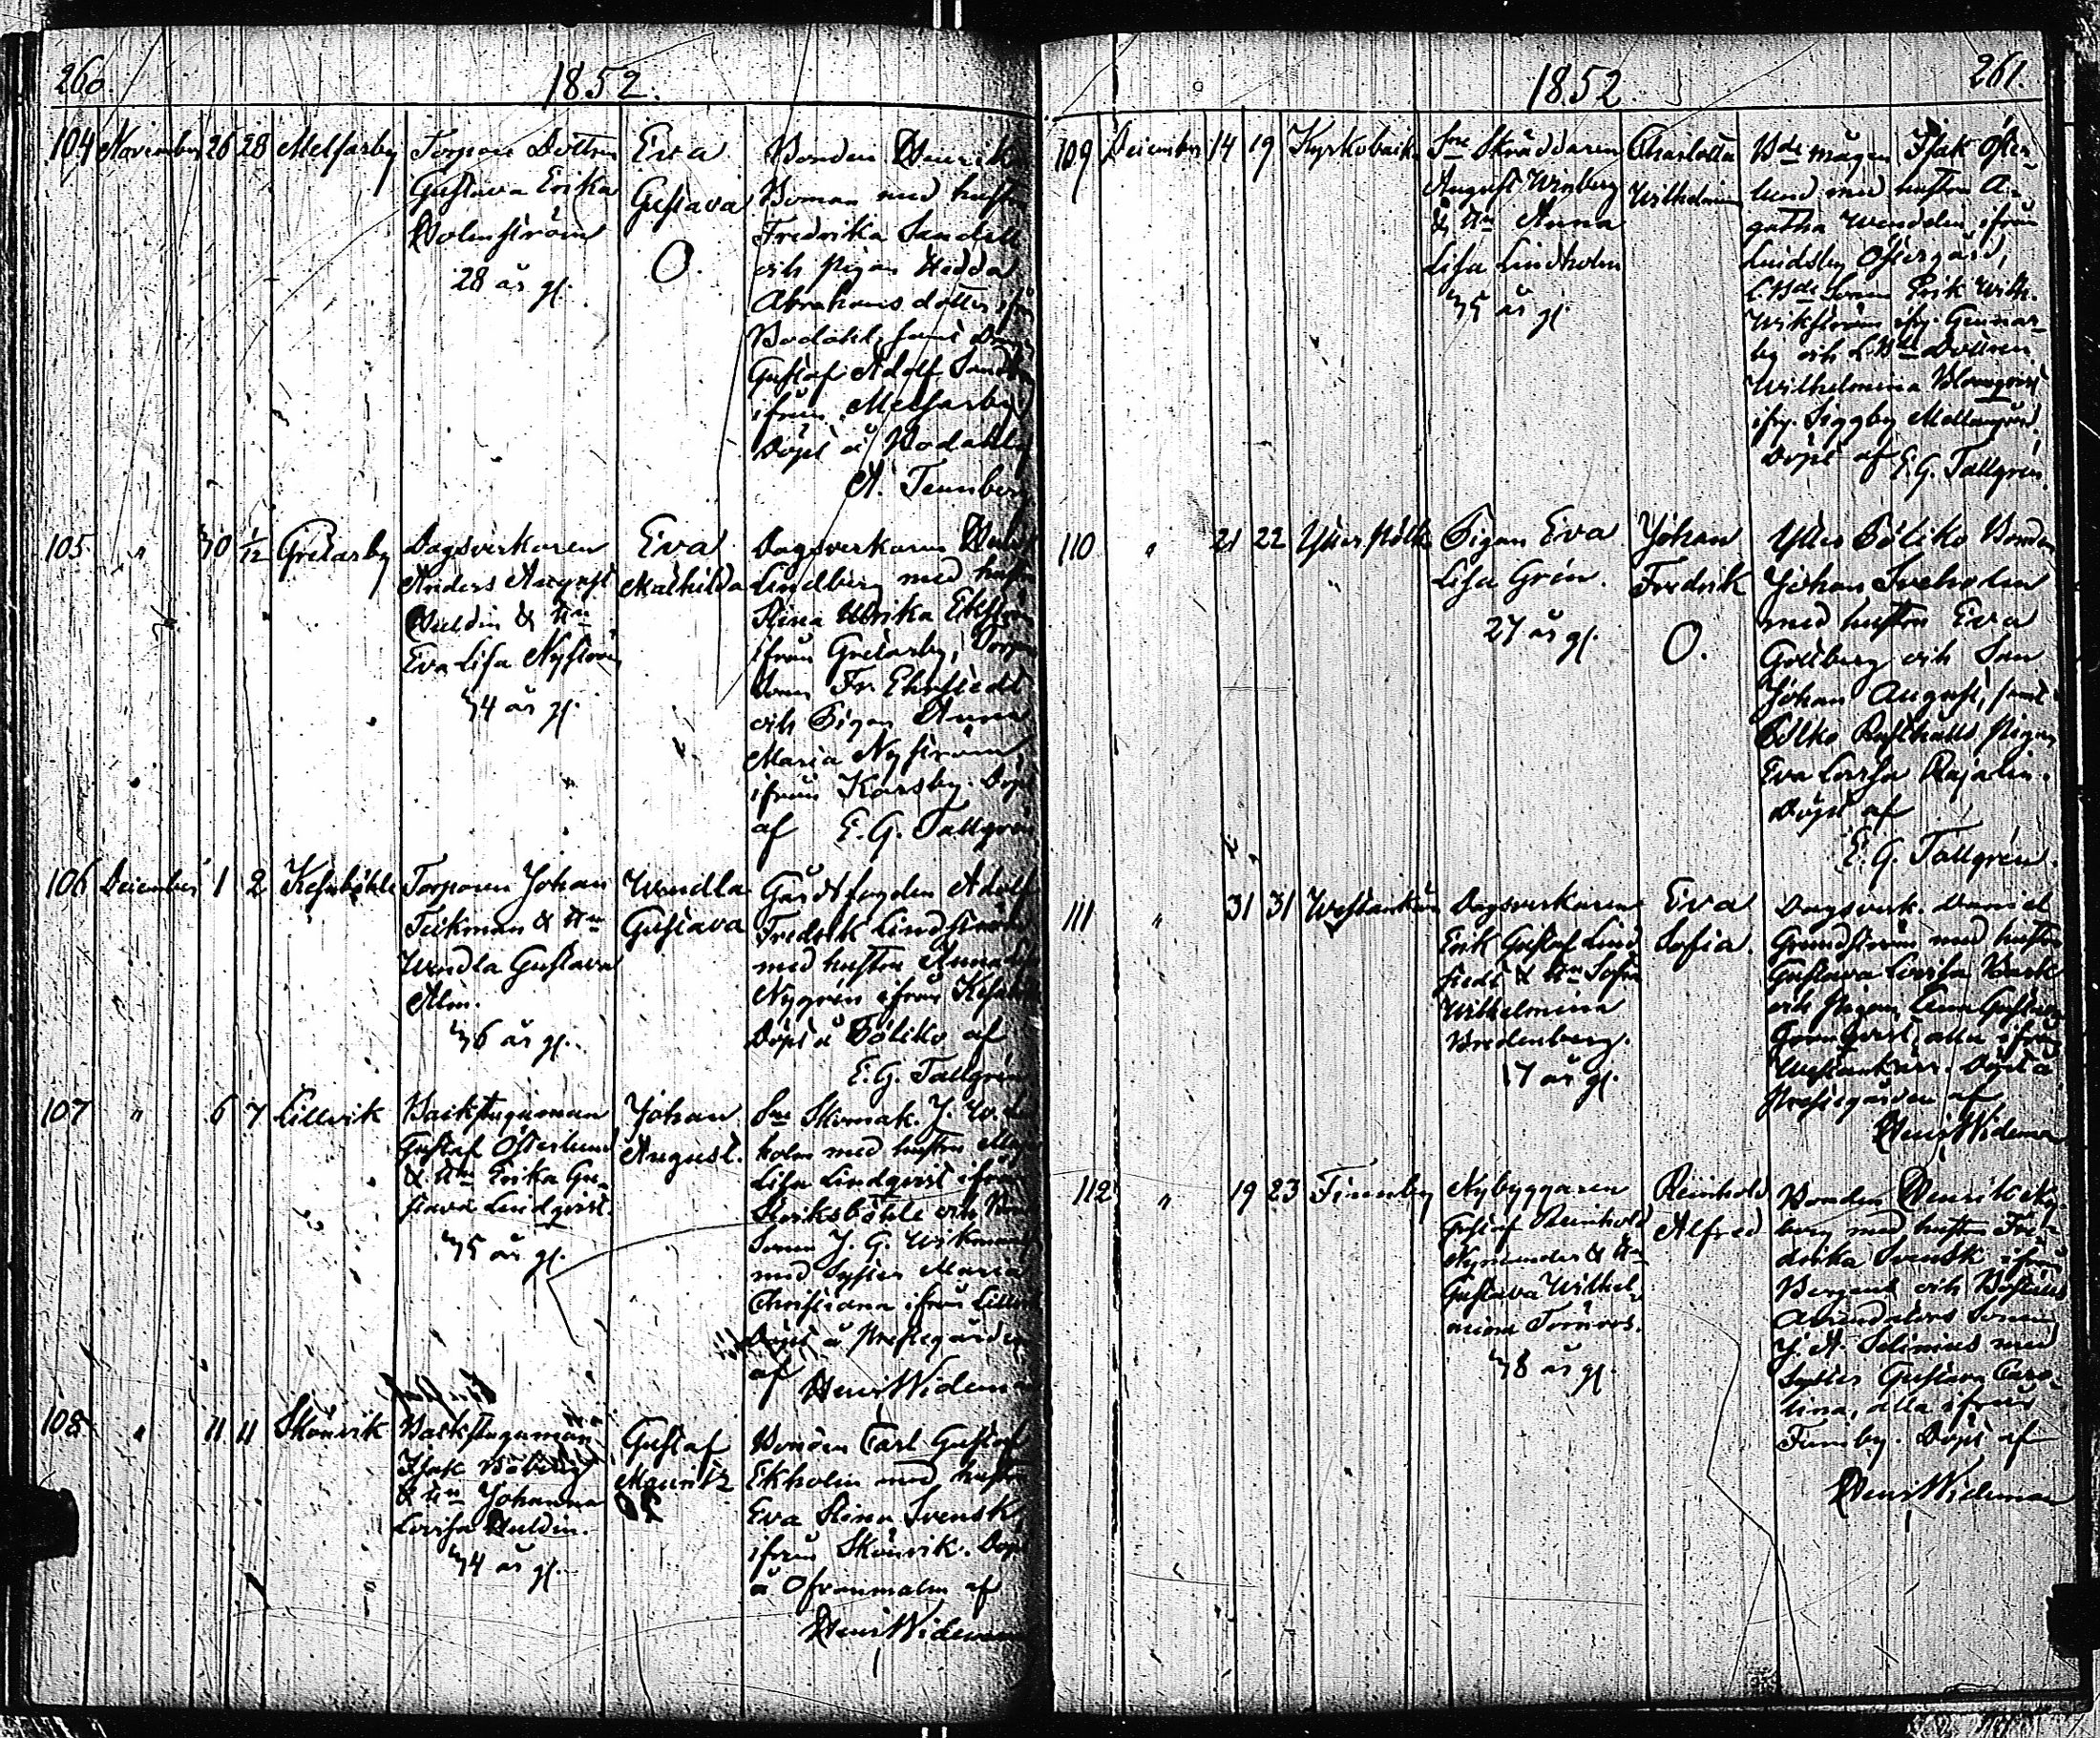 260.
1852.
104 November 26 28 Melsarby
Torpare Dottren
Gustava Erika
Holmström
28 år gl.
Eva
Gustava
O.
Bonden Henrik
Boman med hustru
Fredrika Sandell
och Pigan Hedda
Abrahams dotter ifrån
Bodahl, samt
Gustaf Adolf
ifrån Melsarby
Döpt å Bodahl
A. Tennberg
105 " 30 1/12 Gretarby
Dagsverkaren
Anders August
Huldin & Hu
Eva Lisa Nyström
34 år gl.
Eva
Mathilda
Dagsverkaren
Lindberg med hustru
Stina Ulrika Ekström
ifrån Gretarby,
Fr. Ehrstedt
och Pigan Anna
Maria Nyström
ifrån Karsby. Döpt
af E. G. Tallgren
106 December 1 2 Kesuböhle
Torparen Johan
Tickman & Hu
Wendla Gustava
Alm.
36 år gl.
Wendla
Gustava
Gårdsfogden Adolf
Fredrik Lindström
med hustru Anna
Nygrén ifrån
Döpt å Böliko af
E. G. Tallgrén
107 " 6 7 Lillvik
Backstuguman
Gustaf Österlund
& Hu Erika Gu-
stava Lindqvist.
35 år gl.
Johan
August.
Sne Skomak. J. W.
holm med hustru
Lisa Lindqvist ifrån
Storiksböhle och
Sonen J. G. Wikman
med Syster Maria
Christiana ifrån Lillvik
Döpt å Prestegården
af Henr Wideman
108 " 11 11 Skönvik
Backstuguman
Isak
& Hu Johanna
Lovisa Huldin.
34 år gl.
Gustaf
Mauritz
Bonden Carl Gustaf
Ekholm med hustru
Eva Stina Svensk,
ifrån Skönvik. Döpt
å Ofvanmalm af
Henr Wideman
1852
261.
109 December 14 19 Kyrkoback
Sne Skräddaren
August Winberg
& Hu Anna
Lisa Lindholm
35 år gl.
Charlotta
Wilhelmina
Bde mågen Isak Öster-
lund med hustru A-
gatha Wendelin ifrån
Lindsby Östergård,
L. Bde Sonen Erik Wilh.
Wikström ifrån Gunnar-
by och L. Bde Dottren
Wilhelmina Blomqvist
ifrån Siggby Mellangård,
Döpt af E. G. Tallgrén.
110 " 21 22 Ytter
Pigan Eva
Lisa Grén.
27 år gl.
Johan
Fredrik
O.
Ytter Böliko Bonden
Johan Treholm
med hustru Eva
Göttberg och Son
Johan August, samt
Rusthålls Pigan
Eva Lovisa Rajalin.
Döpt af
E. G. Tallgrén.
111 " 31 31 Westankärr
Dagsverkaren
Erik Gustaf Lind
stedt & Hu Sofia
Wilhelmina
Bredenberg.
17 år gl.
Eva
Sofia.
Dagsverk. Daniel
Grundström med hustru
Gustava Lovisa
och Pigan Anna Gustava
Granqvist, alla ifrån
Westankärr. Döpt å
Prestegården af
Henr Wideman
112 " 19 23 Finnby
Nybyggaren
Gustaf Reinhold
Nymander & Hu
Gustava Wilhel-
mina Törnroos.
38 år gl.
Reinhold
Alfred
Bonden Henrik Ny-
berg med hustru Fre-
drika Svensk ifrån
Bergens och Boställs
Arrendators Sonen
J. A. Selinius med
Syster Gustava Caro-
lina, alla ifrån
Finnby. Döpt af
Henr Wideman